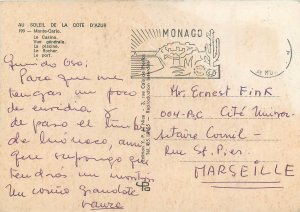 AU SOLEIL DE LA COTE D'AZUR
190 - Monte-Carlo.
Le Casino.
Vue générale.
La piscine.
Le Rocher.
Le port.
MONACO
Querido Oso:
Para que me
tengas un poco
de envidia y
de paso el timbre
de Mónaco, aun
que supongo que
tendras un montón.
Un cariño grandote
Mr. Ernest Fink
004-BC Cité Univer-
sitaire Cornil -
Rue St. Pierre
MARSEILLE